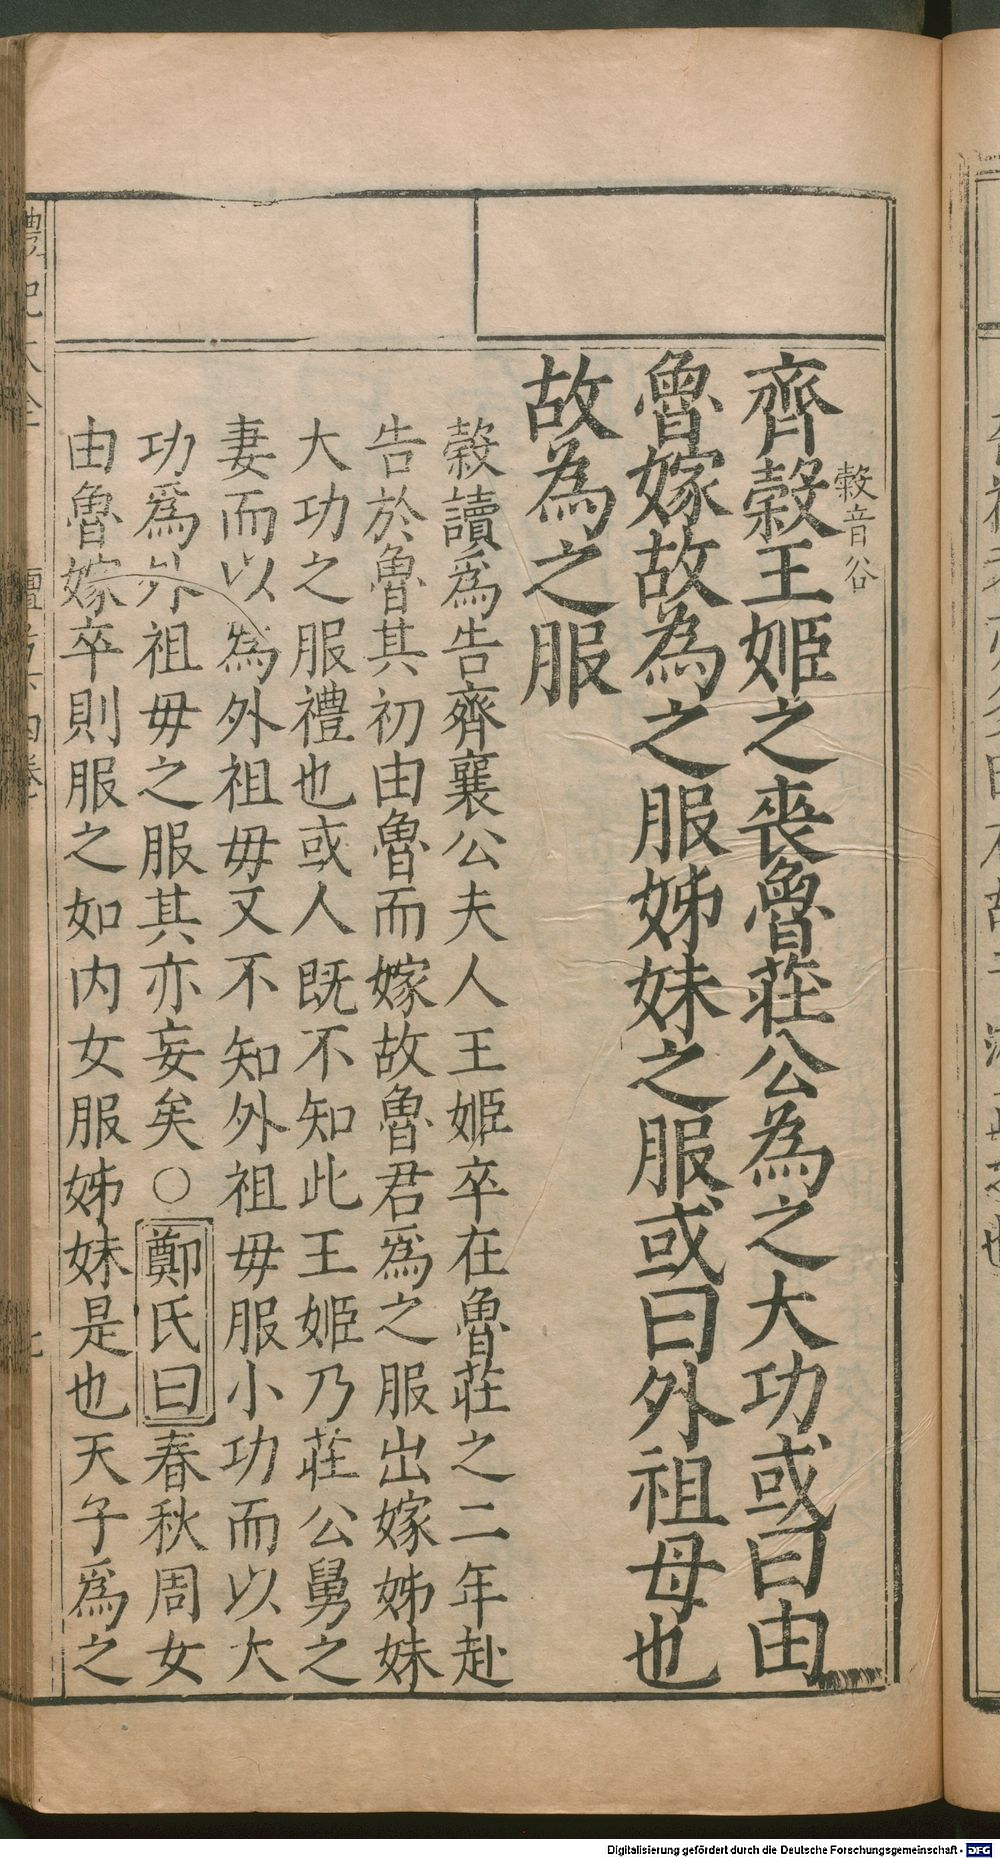 榖音谷
齊榖王姬之喪魯莊公為之大功或曰由
魯嫁故為之服姊妹之服或曰外祖母也
故為之服
榖讀爲告齊襄公夫人王姬卒在魯莊之二年赴
告於魯其初由魯而嫁故魯君爲之服出嫁姊妹
大功之服禮也或人既不知此王姬乃莊公舅之
妻而以爲外祖毋又不知外祖毋服小功而以大
功爲外祖毋之服其亦妄矣○鄭氏曰春秋周女
由魯嫁卒則服之如内女服姊妹是也天子爲之
禮記大全
Digitalisierung gefördert durch die Deutsche Forschungsgemeinschaft - DFG